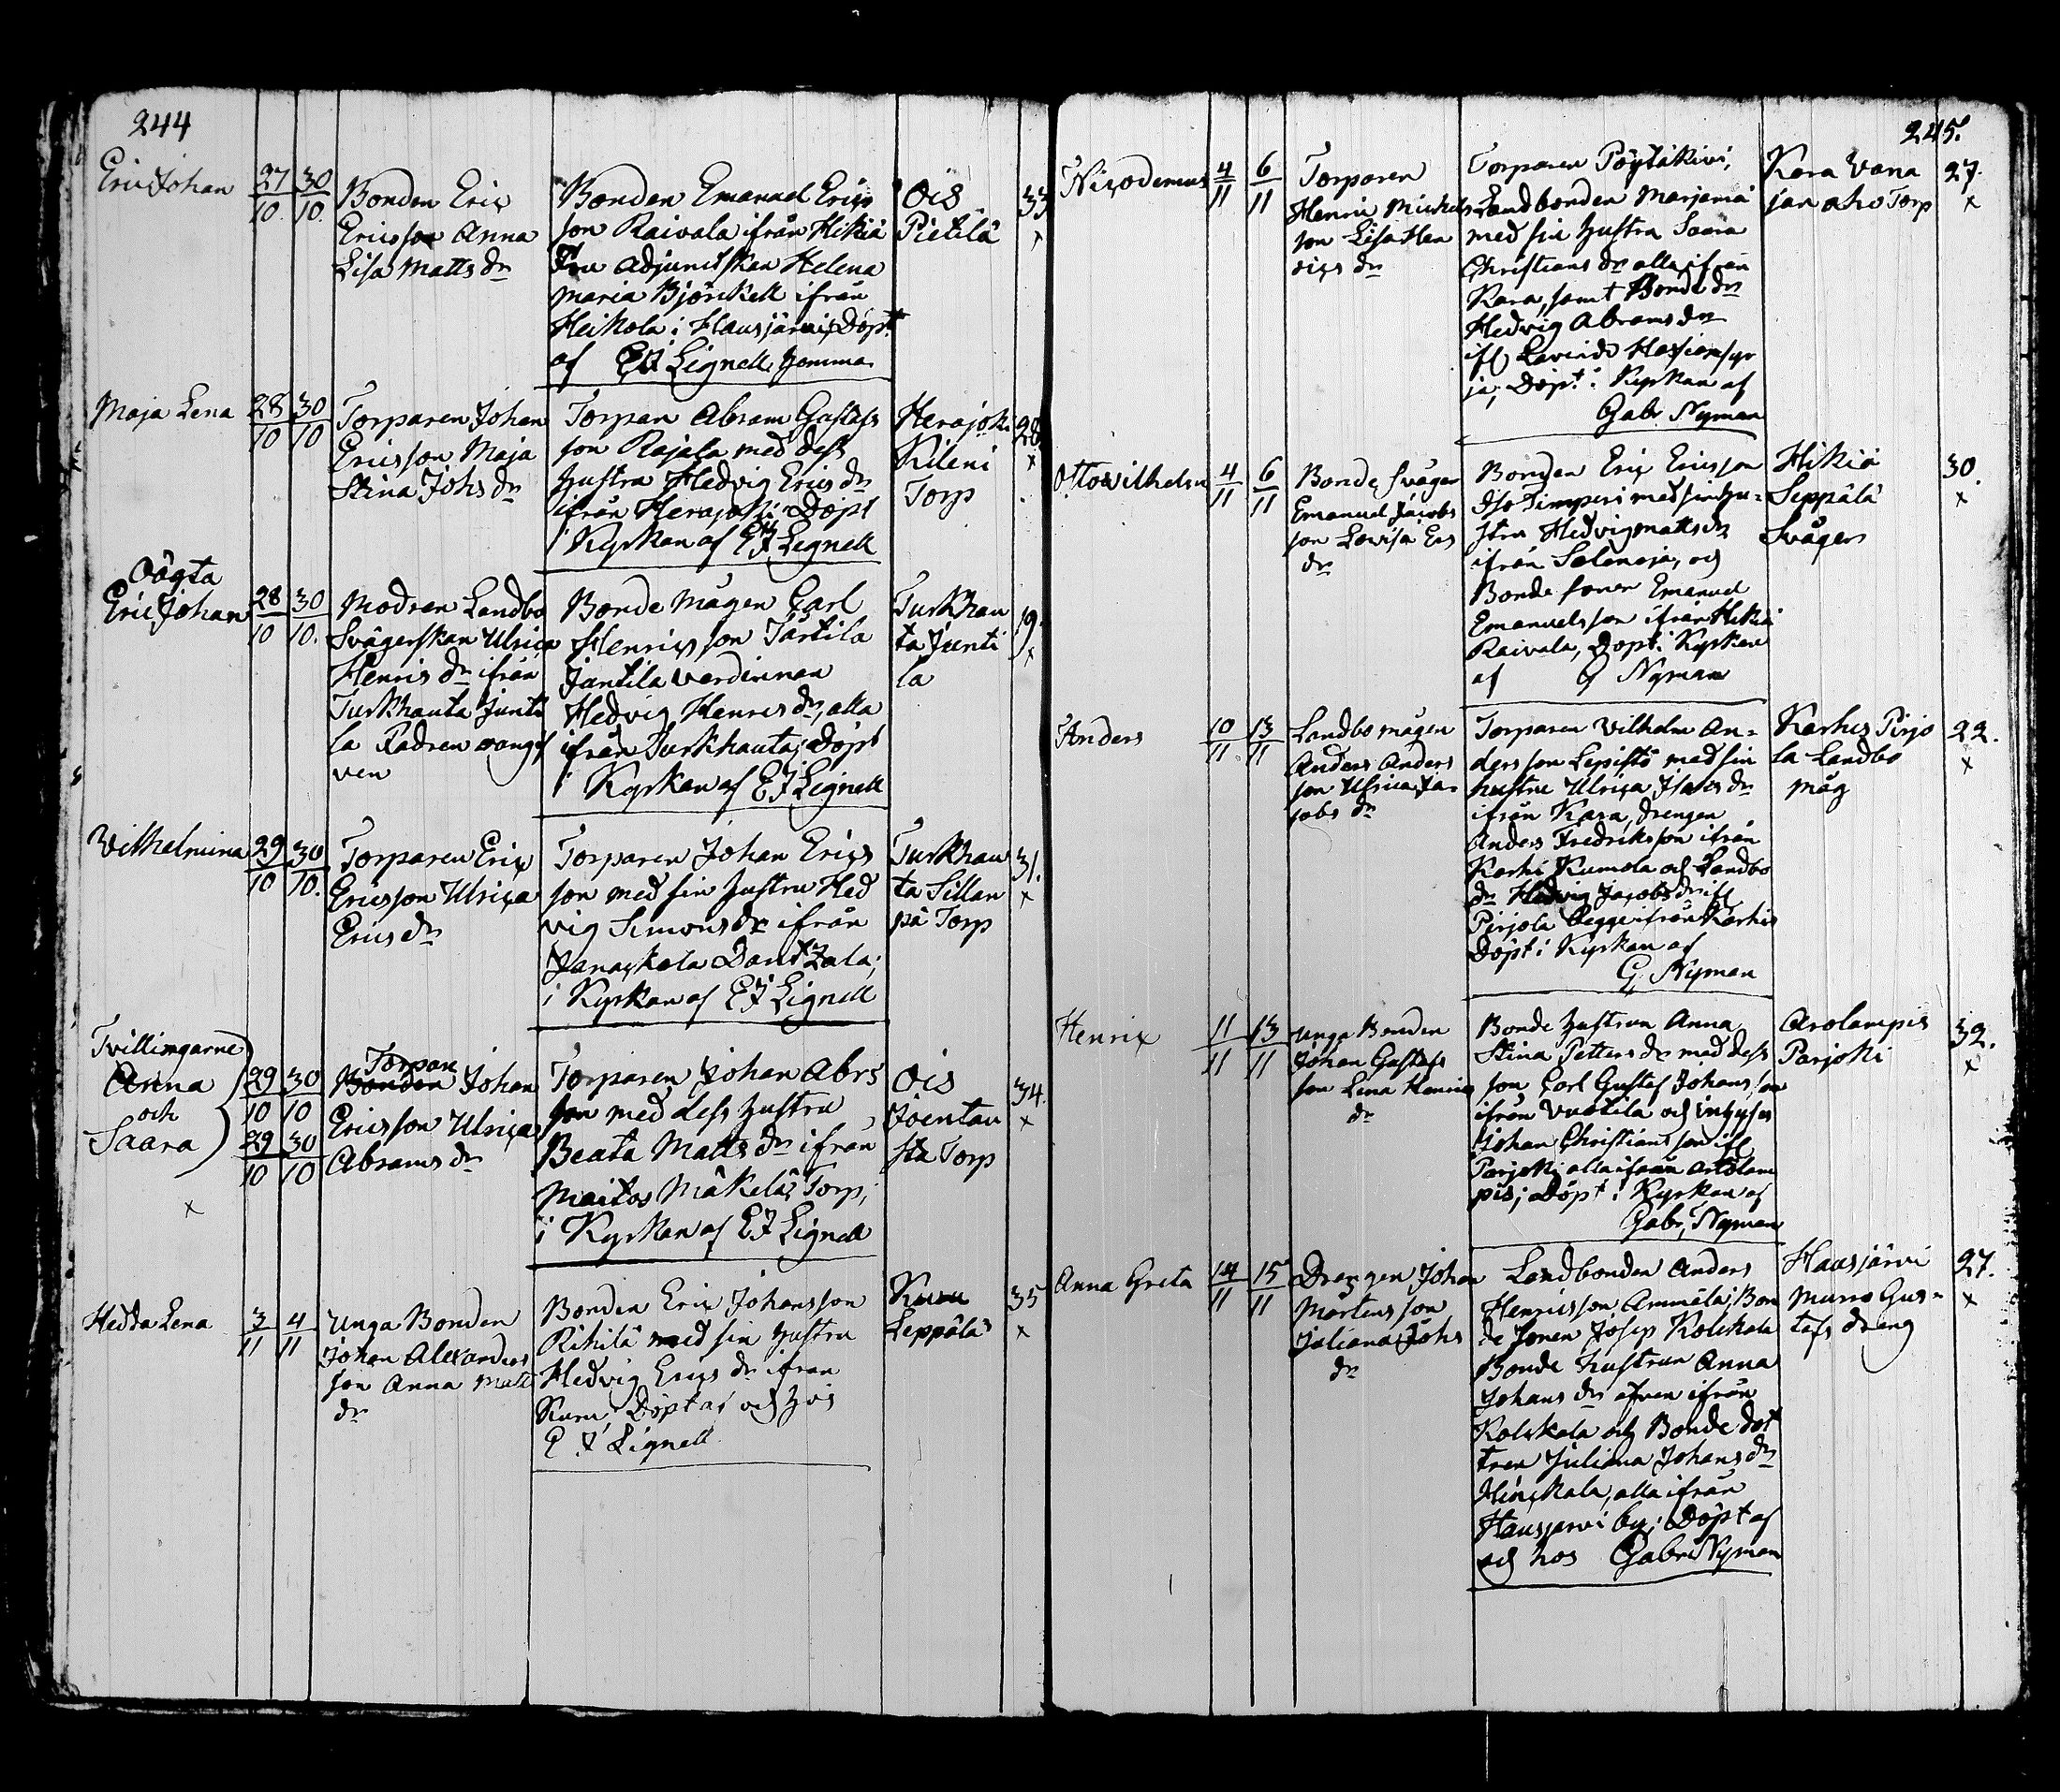 244
Eric Johan 27/10. 30/10. Bonden Eric
Ericsson Anna
Lisa Matts dr
Bonden Emanuel Erics
son Raivala ifrån Hikiä
Fru Adjunctskan Helena
Maria Björckell ifrån
Heikola i Hausjärvi, Döpt
af EJ Lignell, hemma
Ois
Pietilä
33
x
Maja Lena 28/10 30/10 Torparen Johan
Ericsson Maja
Stina Johs dr
Torparn Abram Gustafs
son Rajala med dess
hustru Hedvig Erics dr
ifrån Herajoki Döpt
i Kyrkan af EJ Lignell
Herajoki
Kileni
Torp
28
x
Oägta
Eric Johan 28/10 30/10. Modren Landbo
Svägerskan Ulrica
Henrics dr ifrån
Turkhauta Junti
la Fadren oangif
ven
Bonde Mågen Carl
Henricsson Tärtila
Juntila Verdinnan
Hedvig Henrics dr, alla
ifrån Turkhauta; Döpt
i Kyrkan af EJ Lignell
Turkhau
ta Junti
la
19.
x
Vilhelmina 29/10 30/10. Torparen Eric
Ericsson Ulrica
Erics dr
Torparen Johan Erics
son med sin hustru Hed
vig Simons dr ifrån
Janackala Dantzala;
i Kyrkan af EJ Lignell
Turkhau
ta Sillan
pä Torp
31.
x
Tvillingarne
Anna
och
Saara
29/10 30/10
29/10 30/10
x
Torparn
Bonden Johan
Ericsson Ulrica
Abrams dr
Torparen Johan Abrs
son med dess hustru
Beata Matts dr ifrån
Maitos Mäkelä Torp;
i Kyrkan af EJ Lignell
Ois
Joentau
sta Torp
34.
x
Hedda Lena 3/11 4/11 Unga Bonden
Johan Alexanders
son Anna Matts
dr
Bonden Eric Johansson
Rihilä med sin hustru
Hedvig Erics dr ifrån
Kuru, Döpt af och hos
E J Lignell
Kuru
Leppälä
35
x
245.
Nicodemus 4/11 6/11 Torparen
Henric Michels
son Lisa Hen
rics dr
Torparen Pöytäkivi,
Landbonden Marjamä
med sin hustru Saara
Christians dr alla ifrån
Kara, samt Bonde dr
Hedvig Abrams dr
Döpt i Kyrkan af
Gabr Nyman
Kara Vana
jan aho Torp
27.
x
Otto Vilhelm 4/11 6/11 Bonde Svåger
Emanuel Jacobs
son Lovisa Ers
dr
Bonden Eric Ericsson
Iso Timperi med sin hu=
stru Hedvig Matts dr
ifrån Selenoja, och
Bonde sonen Emanuel
Emanuelsson ifrån Hikiä
Raivala, Döpt i Kyrkan
af G Nyman
Hikiä
Seppälä
Svåger
30.
x
Anders 10/11. 13/11 Landbo mågen
Anders Anders
son Ulrica Ja
cobs dr
Torparen Vilhelm An=
dersson Lepistö med sin
hustru Ulrica Isacs dr
ifrån Kara, drengen
Anders Fredriksson ifrån
Karhi Kumola och Landbo
dr Hedvig Jacobs dr ifl
Pirjola begge ifrån Karhis
Döpt i Kyrkan af
G. Nyman
Karhis Pirjo
la Landbo
måg
22.
x
Henric 11/11 13/11 Unga Bonden
Johan Gustafs
son Lena Henrics
dr
Bonde hustrun Anna
Stina Petters dr med dess
son Carl Gustaf Johansson
ifrån Vuotila och inhyses
Johan Christiansson ifl
Parjoki alla ifrån Arolam
pis; Döpt i Kyrkan af
Gabr, Nyman
Arolampis
Parjoki
32.
x
Anna Greta 14/11 15/11 Drengen Johan
Mårtensson
Juliana Johs
dr
Landbonden Anders
Henricsson Ammälä; Bon
de sonen Josep Kolckala
Bonde hustrun Anna
Johans dr äfven ifrån
Kolckala och Bonde dot
tren Juliana Johans dr
Hinckala, alla ifrån
Hausjärvi by; Döpt af
och hos Gabr Nyman
Hausjärvi
Murro Gus=
tafs dreng
27.
x